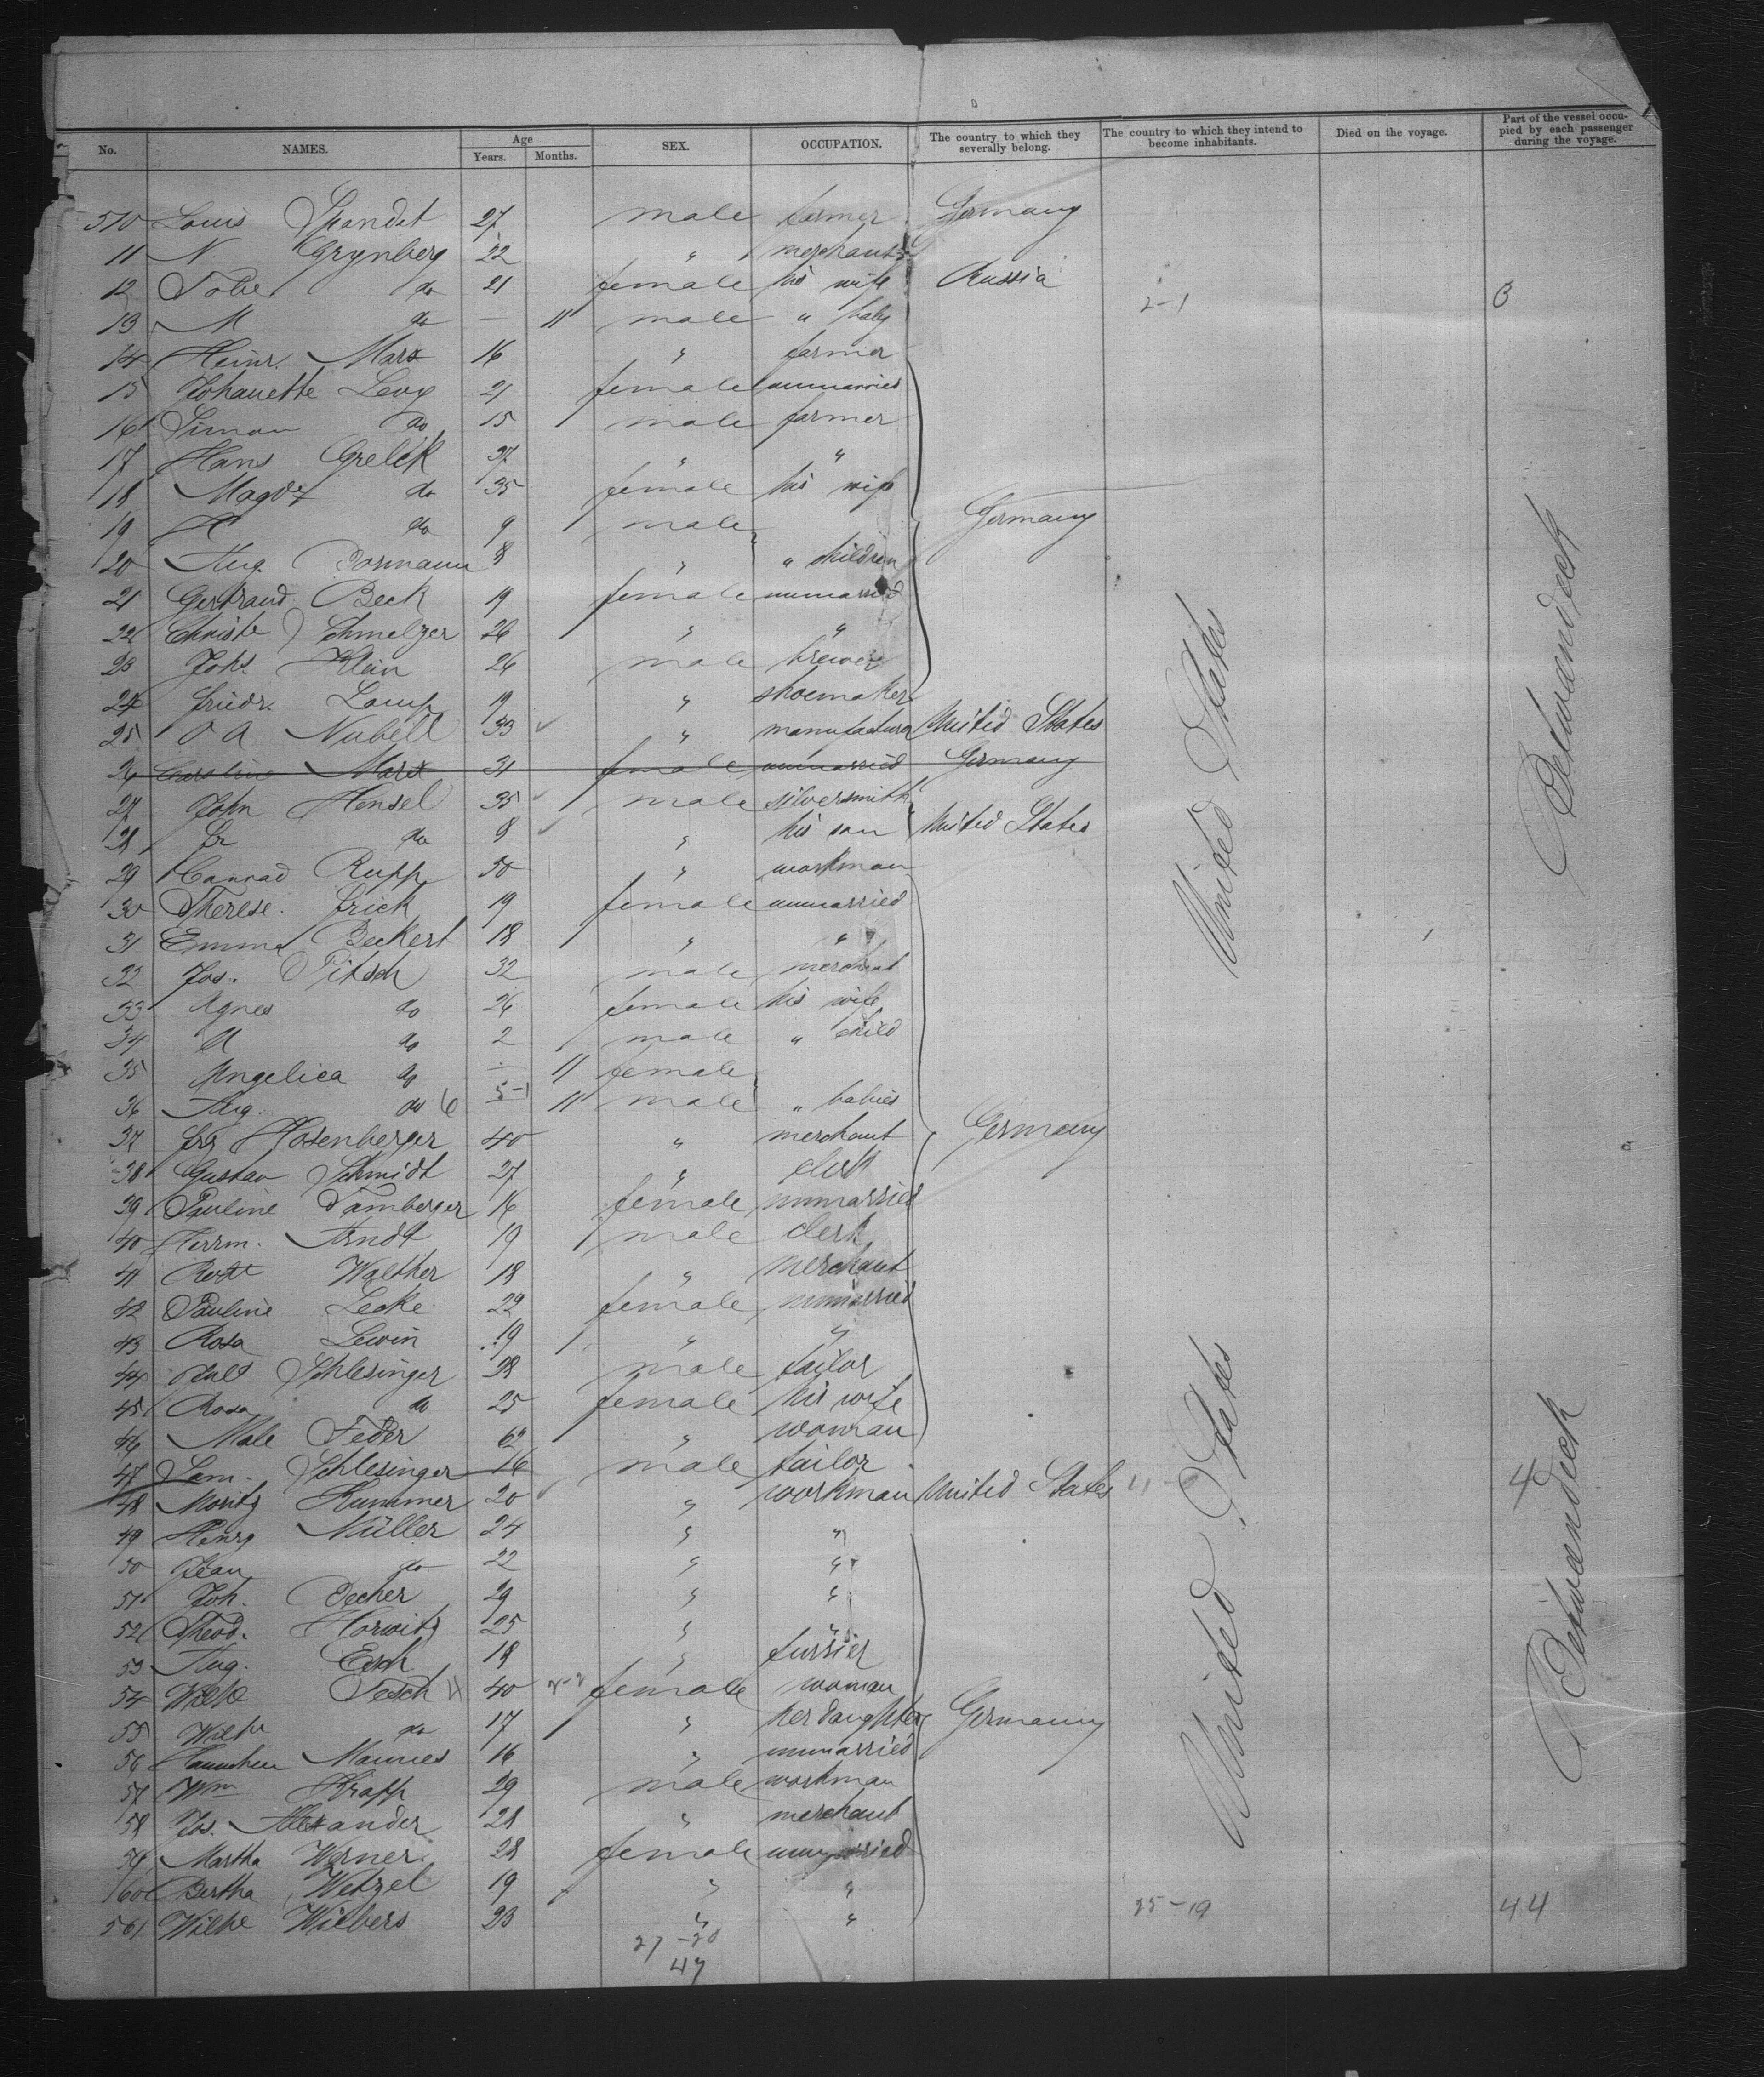 No. NAMES. Age Years. Months. SEX. OCCUPATION. The country to which they severally belong. The country to which they intend to become inhabitants. Died on the voyage. Part of the vessel occupied by each passenger during the voyage.
510 Louis Spandat 27 male farmer Germany
11 N Grynberg 22 " merchant
12 Tobe do 21 female his wife Russia
2-1 3
13 M do — 11 male " baby
14 Heinr. Marx 16 " farmer
15 Johanette Levy 21 female unmarried
16 Simon do 15 male farmer
17 Hans Grelck 37 " "
18 Magd. do 35 female his wife
19 H do 9 male Germany
20 Aug. Bormann 8 " " children
21 Gertraud Beck 19 female unmarried
22 Christe Schmelzer 26 " "
23 Johs. Klein 26 male brewer
24 Friedr. Lamp 19 " shoemaker
25 O A Nubell 33 " manufacturer United States
26 Caroline Marx 31 female unmarried Germany
27 John Hensel 35 male silversmith
28 Fr do 8 " his son United States
29 Conrad Rupp 50 " workman
30 Therese Frick 19 female unmarried
31 Emma Beckert 18 " "
32 Jos. Pitsch 32 male merchant
33 Agnes do 26 female his wife
34 A do 2 male " child
35 Angelica do — 11 female
36 Aug. do 6 5-1 11 male " babies
37 Frz Hosenberger 40 " merchant Germany
38 Gustav Schmidt 27 " clerk
39 Pauline Bamberger 16 female unmarried
40 Herrm. Arndt 19 male clerk
41 Robt Walther 18 " merchant
42 Pauline Lecke 22 female unmarried
43 Rosa Lewin 19 " "
44 Schlesinger 28 male tailor
45 Rosa do 25 female his wife
46 Male Feder 62 " woman
47 Sam. Schlesinger 16 male tailor
48 Moritz Kummer 20 " workman United States 4
49 Henry Müller 24 " "
50 Jean do 22 " "
51 Joh. Becher 29 " "
52 Theod. Horwitz 25 " "
53 Aug. Esch 18 " furrier
54 Wilhe Tesch 4 40 2-2 female woman
55 Wilhe do 17 " her daughter Germany
56 Hannchen Mannes 16 " unmarried
57 Wm Krapp 29 male workman
58 Jos. Alexander 28 " merchant
59 Martha Werner 28 female unmarried
60 Bertha Wetzel 19 " "
25-19 44
561 Wilhe Wilbers 23 " "
27-20
47
United States
United States
Betwandeck
Betwandeck